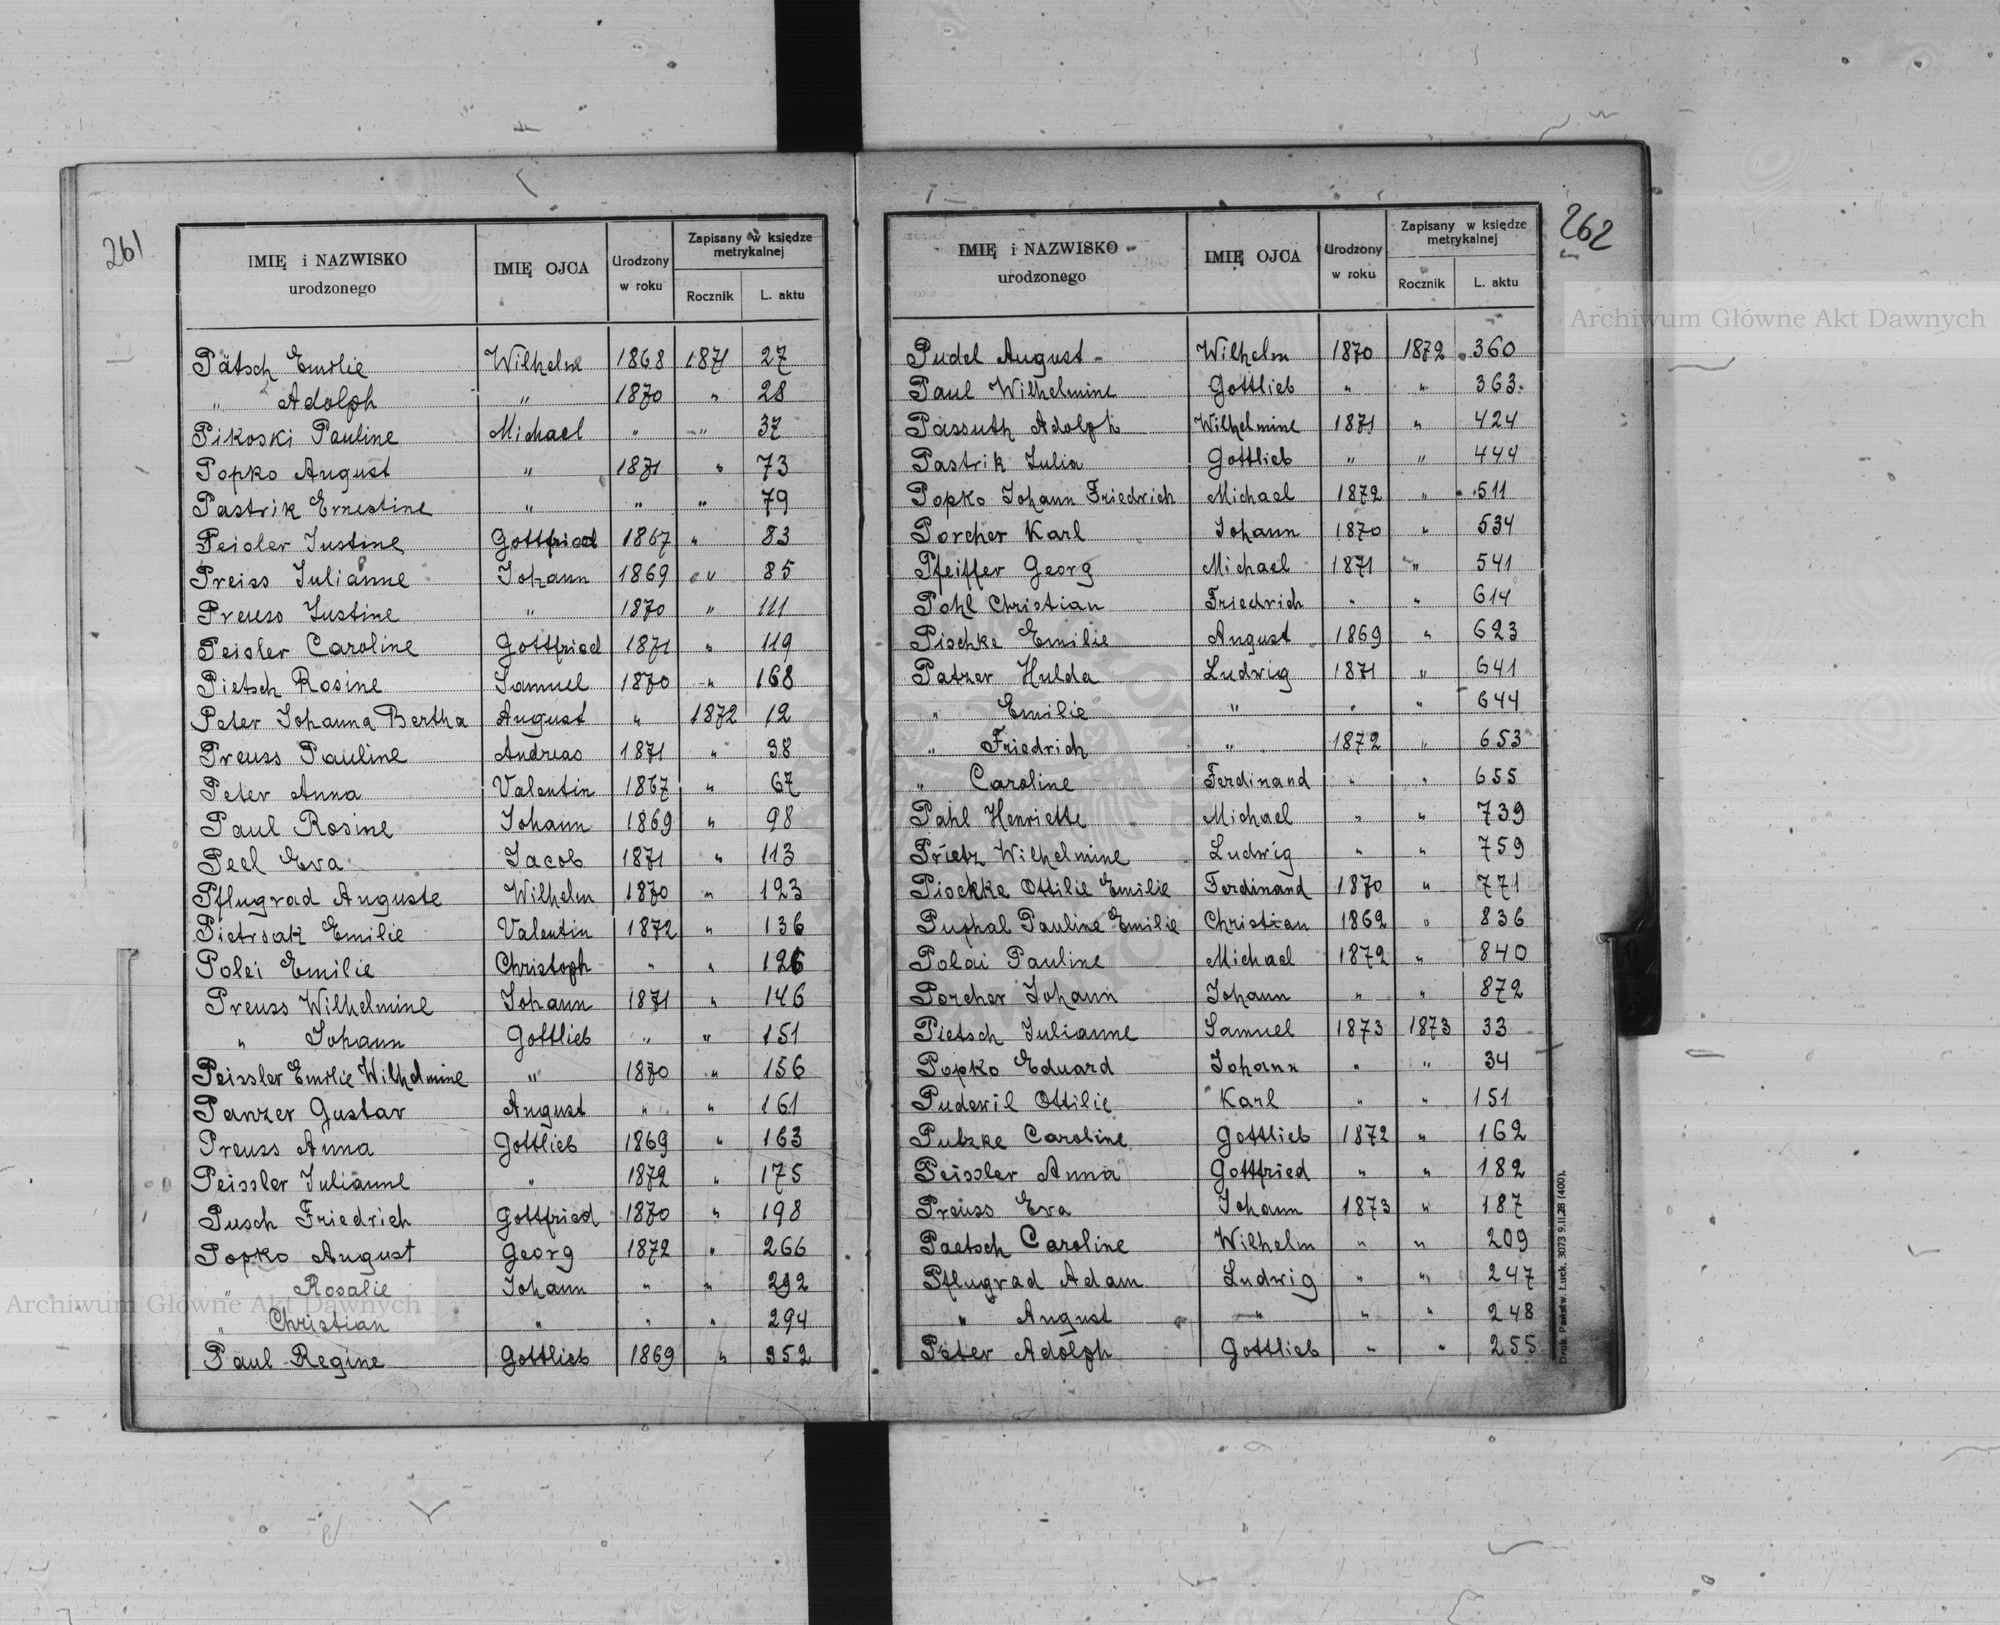 261
IMIĘ i NAZWISKO urodzonego IMIĘ OJCA Urodzony w roku Zapisany w księdze metrykalnej Rocznik L. aktu
Pätsch Emilie Wilhelm 1868 1871 27
" Adolph " 1870 " 28
Pikoski Pauline Michael " " 37
Popko August " 1871 " 73
Pastrik Ernestine " " " 79
Peisler Justine Gottfried 1867 " 83
Preiss Julianne Johann 1869 " 85
Preuss Justine " 1870 " 111
Peisler Caroline Gottfried 1871 " 119
Pietsch Rosine Samuel 1870 " 168
Peter Johanna Bertha August " 1872 12
Preuss Pauline Andreas 1871 " 38
Peter Anna Valentin 1867 " 67
Paul Rosine Johann 1869 " 98
Peel Eva Jacob 1871 " 113
Pflugrad Auguste Wilhelm 1870 " 123
Pietrsak Emilie Valentin 1872 " 136
Polei Emilie Christoph " " 126
Preuss Wilhelmine Johann 1871 " 146
" Johann Gottlieb " " 151
Peissler Emilie Wilhelmine " 1870 " 156
Panzer Gustav August " " 161
Preuss Anna Gottlieb 1869 " 163
Peissler Julianne " 1872 " 175
Pusch Friedrich Gottfried 1870 " 198
Popko August Georg 1872 " 266
" Rosalie Johann " " 292
" Christian " " " 294
Paul Regine Gottlieb 1869 " 352
262
IMIĘ i NAZWISKO urodzonego IMIĘ OJCA Urodzony w roku Zapisany w księdze metrykalnej Rocznik L. aktu
Pudel August Wilhelm 1870 1872 360
Paul Wilhelmine Gottlieb " " 363
Passuth Adolph Wilhelmine 1871 " 424
Pastrik Julia Gottlieb " " 444
Popko Johann Friedrich Michael 1872 " 511
Porcher Karl Johann 1870 " 534
Pfeiffer Georg Michael 1871 " 541
Pohl Christian Friedrich " " 614
Pischke Emilie August 1869 " 623
Patzer Hulda Ludwig 1871 " 641
" Emilie " " " 644
" Friedrich " 1872 " 653
" Caroline Ferdinand " " 655
Pahl Henriette Michael " " 739
Prietz Wilhelmine Ludwig " " 759
Pischke Ottilie Emilie Ferdinand 1870 " 771
Puphal Pauline Emilie Christian 1862 " 836
Polai Pauline Michael 1872 " 840
Porcher Johann Johann " " 872
Pietsch Julianne Samuel 1873 1873 33
Popko Eduard Johann " " 34
Pudewil Ottilie Karl " " 151
Putzke Caroline Gottlieb 1872 " 162
Peissler Anna Gottfried " " 182
Preuss Eva Johann 1873 " 187
Paetsch Caroline Wilhelm " " 209
Pflugrad Adam Ludwig " " 247
" August " " " 248
Peter Adolph Gottlieb " " 255
Druk. Państw. Łuck. 3073 9.II.28 (400).
Archiwum Główne Akt Dawnych
Archiwum Główne Akt Dawnych